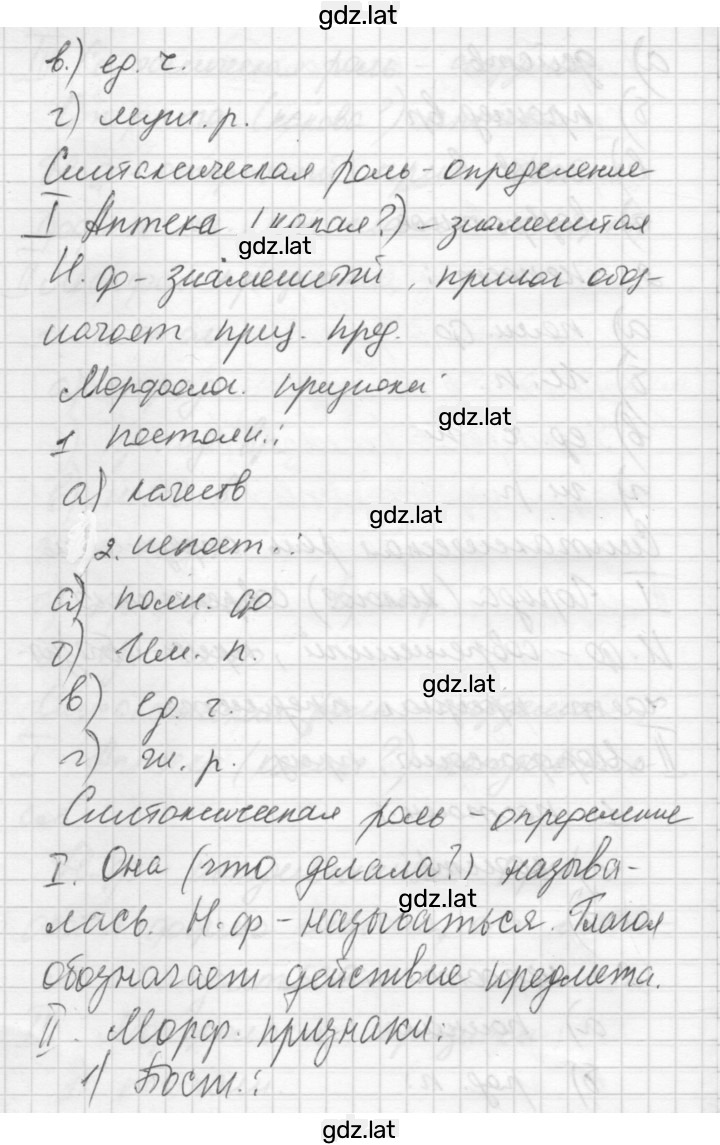 gdz.lat
в.) ед. ч.
г) муж. р.
Синтаксическая роль - определение
I Аптека (какая?) - знаменитая
gdz.lat
Н. ф - знаменитый, прилаг обоз-
начает приз. пред.
Морфола. признаки
gdz.lat
1 постоян.:
а) качеств
gdz.lat
2. непост.:
а) полн. ф
б) Им. п.
gdz.lat
в) ед. ч.
г) ж. р.
Синтаксическая роль - определение
I. Она (что делала?) называ-
gdz.lat
лась. Н. ф - называться. Глагол
обозначает действие предмета.
II. Морф. признаки:
1) Пост.:
gdz.lat